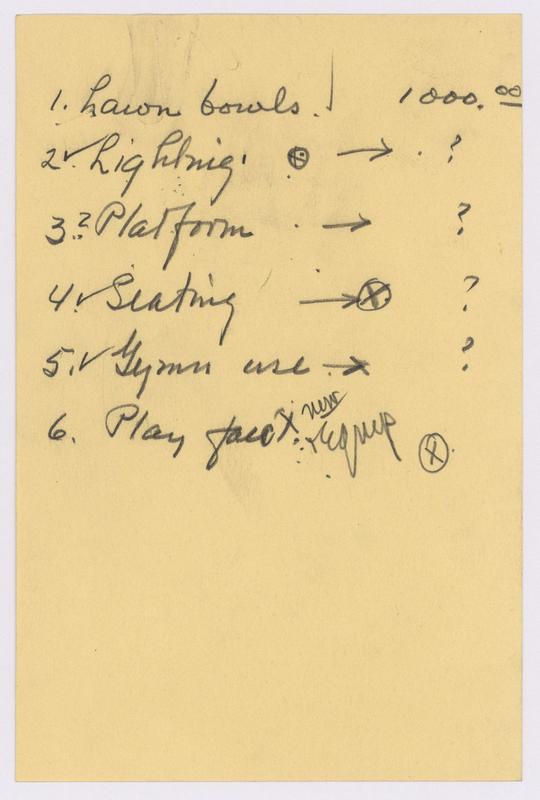 1. Lawn bowls. 1000.00
2.✓ Lighting. ⊗ → . ?
3.? Platform . → ?
4.✓ Seating → ⊗ ?
5.✓ Gymn use → ?
new
6. Play X Equip ⊗